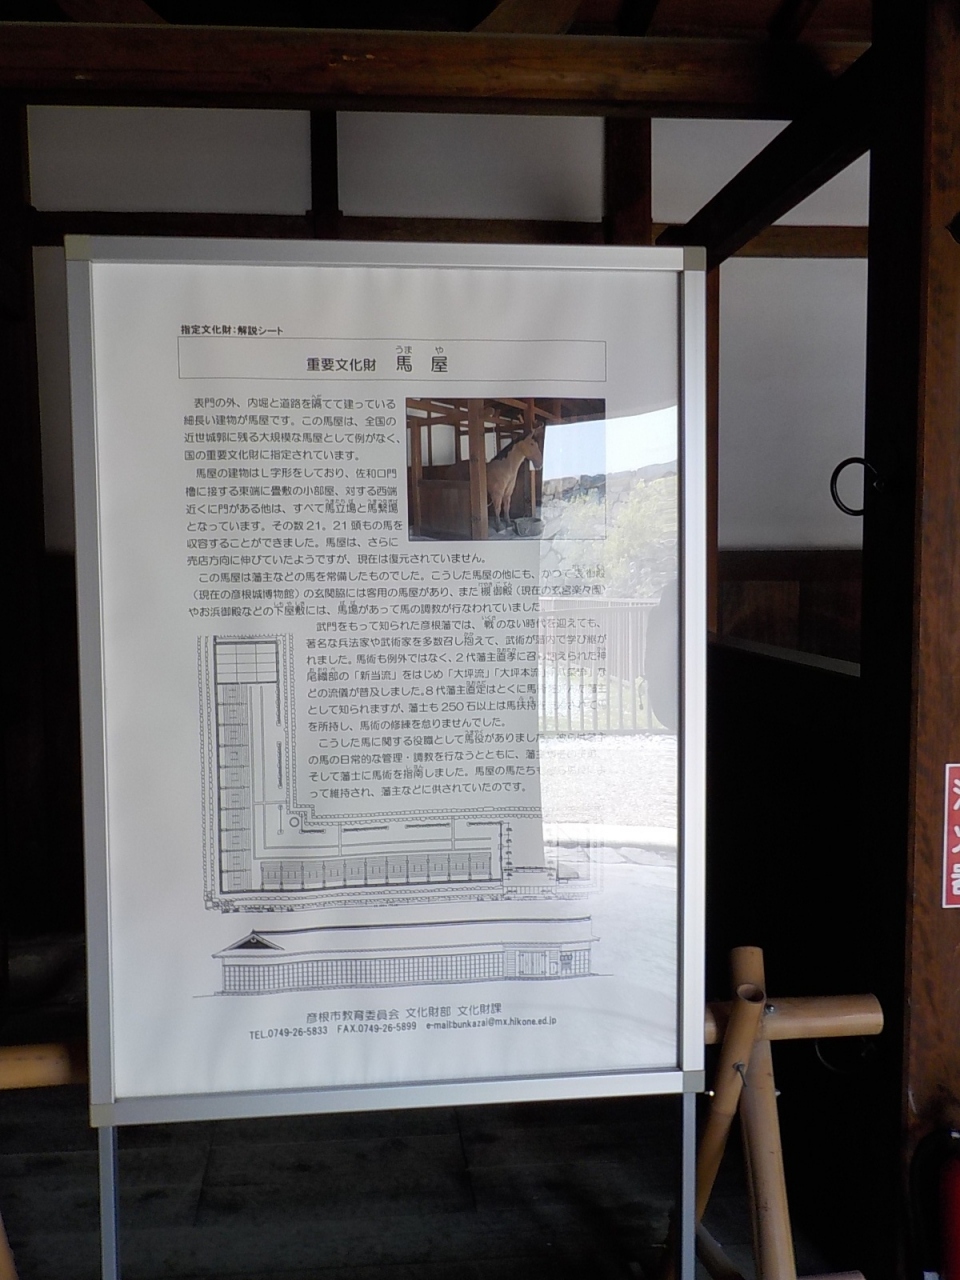 指定文化財：解説シート
重要文化財 馬屋
うま や
表門の外、内堀と道路を隔てて建っている
細長い建物が馬屋です。この馬屋は、全国の
近世城郭に残る大規模な馬屋として例がなく、
国の重要文化財に指定されています。
馬屋の建物はL字形をしており、佐和口門
櫓に接する東端に畳敷の小部屋、対する西端
近くに門がある他は、すべて馬立場と馬繋場
となっています。その数21。21頭もの馬を
収容することができました。馬屋は、さらに
売店方向に伸びていたようですが、現在は復元されていません。
この馬屋は藩主などの馬を常備したものでした。こうした馬屋の他にも、かつて表御殿
（現在の彦根城博物館）の玄関脇には客用の馬屋があり、また槻御殿（現在の玄宮楽々園）
やお浜御殿などの下屋敷には、馬場があって馬の調教が行なわれていました。
武門をもって知られた彦根藩では、戦のない時代を迎えても、
著名な兵法家や武術家を多数召し抱えて、武術が藩内で学び継が
れました。馬術も例外ではなく、2代藩主直孝に召し抱えられた神
尾織部の「新当流」をはじめ「大坪流」「大坪本流」
どの流儀が普及しました。8代藩主直定はとくに馬
として知られますが、藩士も250石以上は馬扶持
を所持し、馬術の修練を怠りませんでした。
こうした馬に関する役職として馬役がありました。
の馬の日常的な管理・調教を行なうとともに、藩主
そして藩士に馬術を指南しました。馬屋の馬たちも
って維持され、藩主などに供されていたのです。
彦根市教育委員会 文化財部 文化財課
TEL.0749-26-5833 FAX.0749-26-5899 e-mail:bunkazai@mx.hikone.ed.jp
消火器